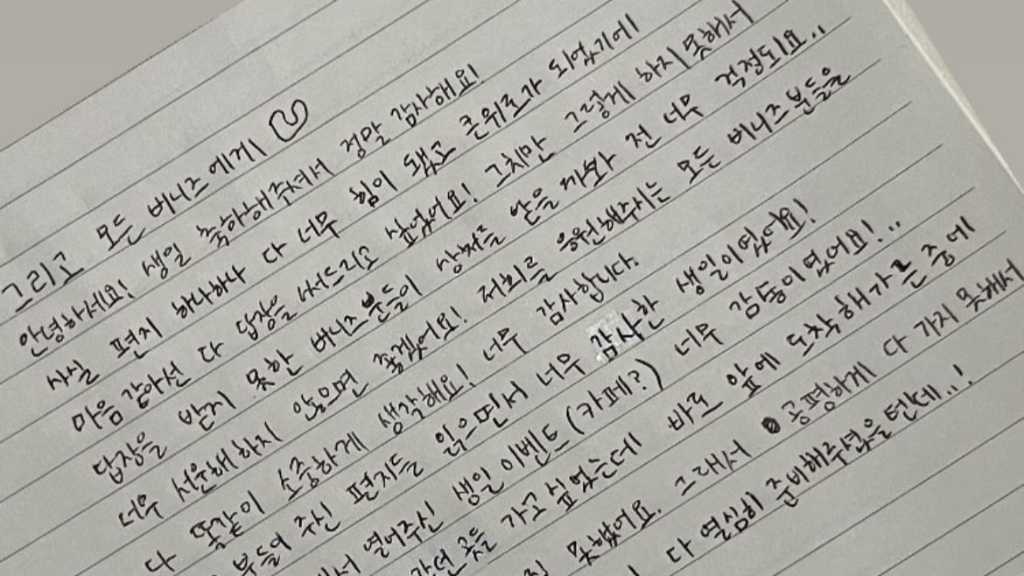 그리고 모든 버니즈에게
안녕하세요! 생일 축하해주셔서 정말 감사해요!
사실 편지 하나하나 다 너무 힘이 됐고 큰위로가 되었기에
마음같아선 다 답장을 써드리고 싶었어요! 그치만 그렇게 하지 못해서
답장을 받지 못한 버니즈분들이 상처를 받을까봐 전 너무 걱정되요..
너무 서운해하지 않으면 좋겠어요! 저희를 응원해주시는 모든 버니즈분들을
다 똑같이 소중하게 생각해요! 너무 감사합니다.
분들이 주신 편지들 읽으면서 너무 감사한 생일이었어요!
서 열어주신 생일 이벤트(카페?) 너무 감동이었어요!..
곳들 가고 싶었는데 바로 앞에 도착해가는 중에
못했어요. 그래서 공평하게 다 가지 못해서
다 열심히 준비해주셨을텐데..!